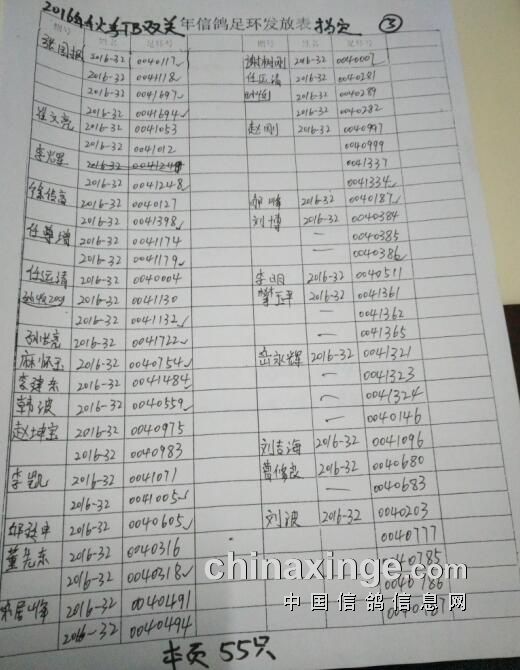 2016年秋季TB双关年信鸽足环发放表 指定 ③
棚号 姓名 足环号 棚号 姓名 足环号
张国振 2016-32 0040117✓ 谢树刚 2016-32 0040007✓
2016-32 0041118✓ 任远清 2016-32 0040281
2016-32 0041697✓ 2016-32 0040289
2016-32 0041694✓ 2016-32 0040282
崔文亮 2016-32 0041053 赵刚 2016-32 0040997
2016-32 0041012 0040999
李光军 0041337
2016-32 0041248✓ 0041334✓
徐传高 2016-32 0040127 郝峰 2016-32 0040187✓
2016-32 0041398✓ 刘博 2016-32 0040384
任尊增 2016-32 0041174 — 0040385
2016-32 0041179✓ — 0040386✓
任远清 2016-32 0040004 李明 2016-32 0040511
2016-32 0041130 攀玉平 2016-32 0041361
2016-32 0041132✓ — 0041362
孙洪亮 2016-32 0041722✓ — 0041365
麻怀玉 2016-32 0040754✓ 峦永辉 2016-32 0041321
李建东 2016-32 0041484 — 0041323
韩波 2016-32 0040559✓ — 0041324
赵坤宝 2016-32 0040975 — 0040146
2016-32 0040983 刘吉海 2016-32 0041096
李凯 2016-32 0041071 曹修良 2016-32 0040680
2016-32 0041005✓ — 0040683
2016-32 0040605✓ 刘波 2016-32 0040203
董先东 2016-32 0040316 0040777
2016-32 0040318✓ 0040785
2016-32 0040491 0040786
2016-32 0040494
本页 55只
chinaxinge.com
中国信鸽信息网